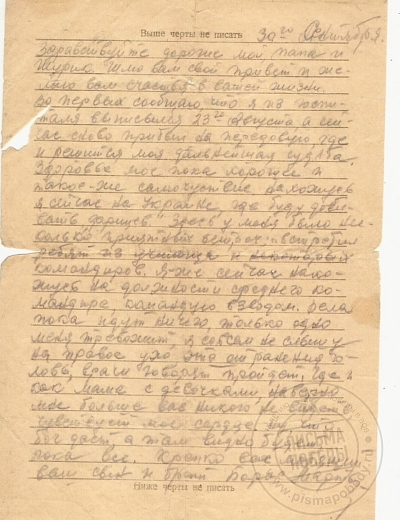 Выше черты не писать
30 го Сентября.
Здравствуйте дорогие мои папа и
Шурик шлю вам свой привет и же-
лаю вам счастья в вашей жизни.
Во первых сообщаю, что я из госпи-
таля выписился 23го августа а сей-
час снова прибыл на передовую, где
и решится моя дальнейшая судьба.
Здоровье мое пока хорошее и
такое-же самочувствие нахожусь
я сейчас на Украине, где буду доби-
вать фрицев. Здесь у меня было нес-
колько приятных встреч встретил
ребят из училища и некоторых
командиров. Я-же сейчас нахо-
жусь на должности среднего ко-
мандира командую взводом. Дела
пока идут ничего, только одно
меня тревожит я совсем не слышу
на правое ухо это от ранения го-
ловы, врачи говорят пройдет, где и
как мама с девочками,
мне больше вас никого не видеть
чувствует мое сердце, но
бог даст, а там видно будет
пока все. Крепко вас
ваш сын и брат Борис
Ниже черты не писать
ПИСЬМА ПОБЕДЫ
© www.pismapobedy.ru